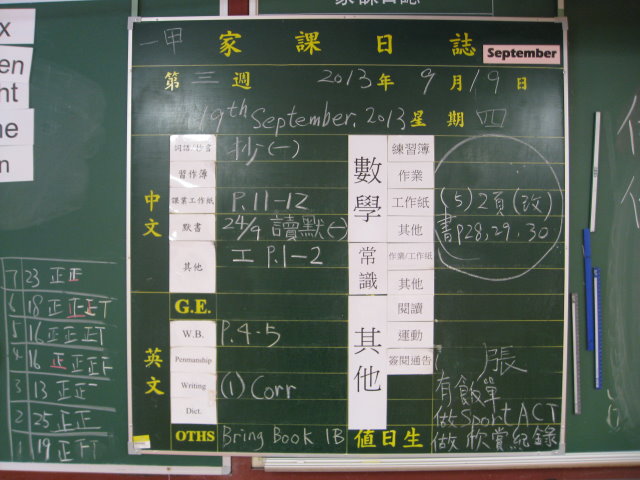 家課日誌
一甲 家課日誌 September
第三週 2013年9月19日
19th September, 2013 星期四
中文
詞語/抄書 抄(一)
習作簿
課業工作紙 P.11-12
默書 24/9 讀默(一)
其他 工 P.1-2
英文
G.E.
W.B. P.4-5
Penmanship
Writing (1) Corr
Dict.
OTHS Bring Book 1B
數學
練習簿
作業
工作紙 (5)2頁(改)
其他 書p28,29.30
常識
作業/工作紙
其他
其他
閱讀
運動
簽閱通告 張
有飯單
做Sport ACT
值日生 做欣賞紀錄
x
en
ht
ne
n
7 23 正正
6 18
5 16
4 16
3 13
2 25 正正
1 19